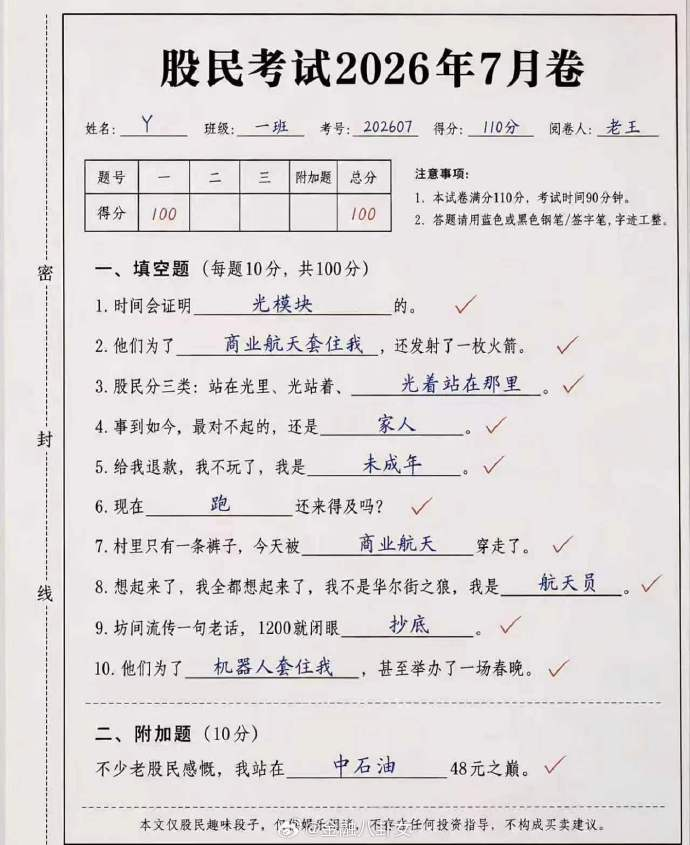 股民考试2026年7月卷
姓名: Y 班级: 一班 考号: 202607 得分: 110分 阅卷人: 老王
题号 一 二 三 附加题 总分
得分 100 100
注意事项:
1. 本试卷满分110分，考试时间90分钟。
2. 答题请用蓝色或黑色钢笔/签字笔,字迹工整。
密
封
线
一、填空题（每题10分，共100分）
1. 时间会证明 光模块 的。
2. 他们为了 商业航天套住我 ，还发射了一枚火箭。
3. 股民分三类：站在光里、光站着、 光着站在那里 。
4. 事到如今，最对不起的，还是 家人 。
5. 给我退款，我不玩了，我是 未成年 。
6. 现在 跑 还来得及吗？
7. 村里只有一条裤子，今天被 商业航天 穿走了。
8. 想起来了，我全都想起来了，我不是华尔街之狼，我是 航天员 。
9. 坊间流传一句老话，1200就闭眼 抄底 。
10. 他们为了 机器人套住我 ，甚至举办了一场春晚。
二、附加题（10分）
不少老股民感慨，我站在 中石油 48元之巅。
本文仅股民趣味段子，仅供娱乐阅读，不存在任何投资指导，不构成买卖建议。
@金融八卦女